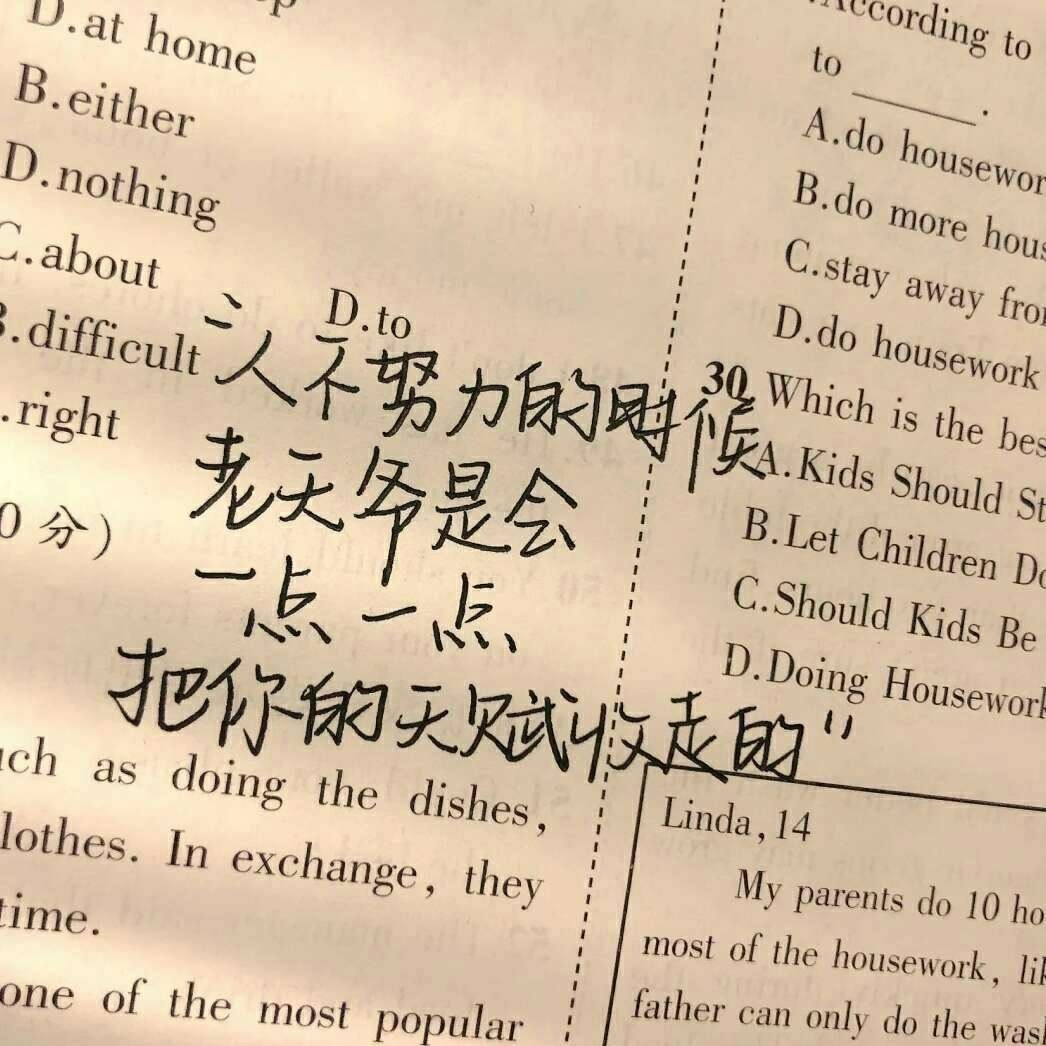 D.at home
B.either
D.nothing
C.about
D.to
B.difficult
.right
0分)
“人不努力的时候
老天爷是会
一点一点
把你的天赋收走的”
such as doing the dishes,
clothes. In exchange, they
time.
one of the most popular
According to
to ______.
A.do housewor
B.do more hous
C.stay away fro
D.do housework
30.Which is the bes
A.Kids Should St
B.Let Children Do
C.Should Kids Be
D.Doing Housework
Linda,14
My parents do 10 ho
most of the housework, lik
father can only do the wash